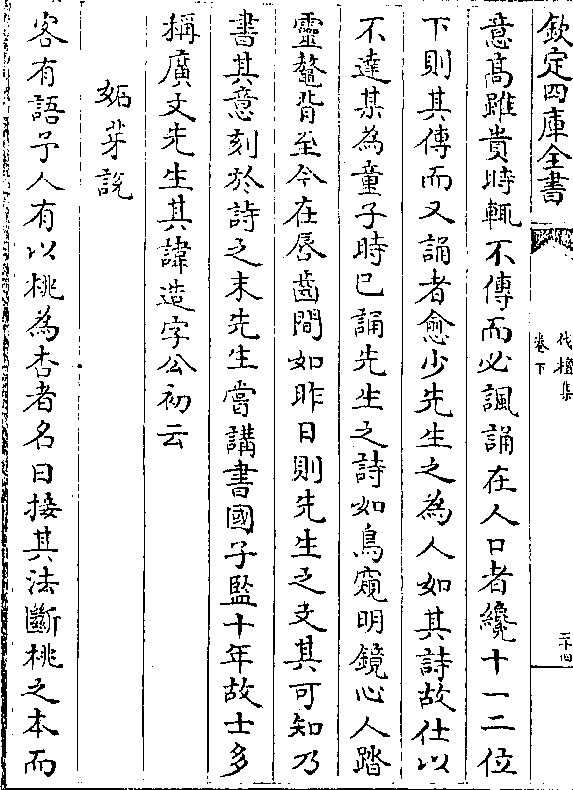 欽定四庫全書
伐檀集
卷下
三十四
意髙雖貴時輒不傳而必諷誦在人口者纔十一二位
下則其傳而又誦者愈少先生之為人如其詩故仕以
不達某為童子時已誦先生之詩如鳥窺明鏡心人踏
靈鼇背至今在唇齒間如昨日則先生之文其可知乃
書其意刻於詩之末先生嘗講書國子監十年故士多
稱廣文先生其諱造字公初云
妬芽說
客有語予人有以桃為杏者名曰接其法斷桃之本而